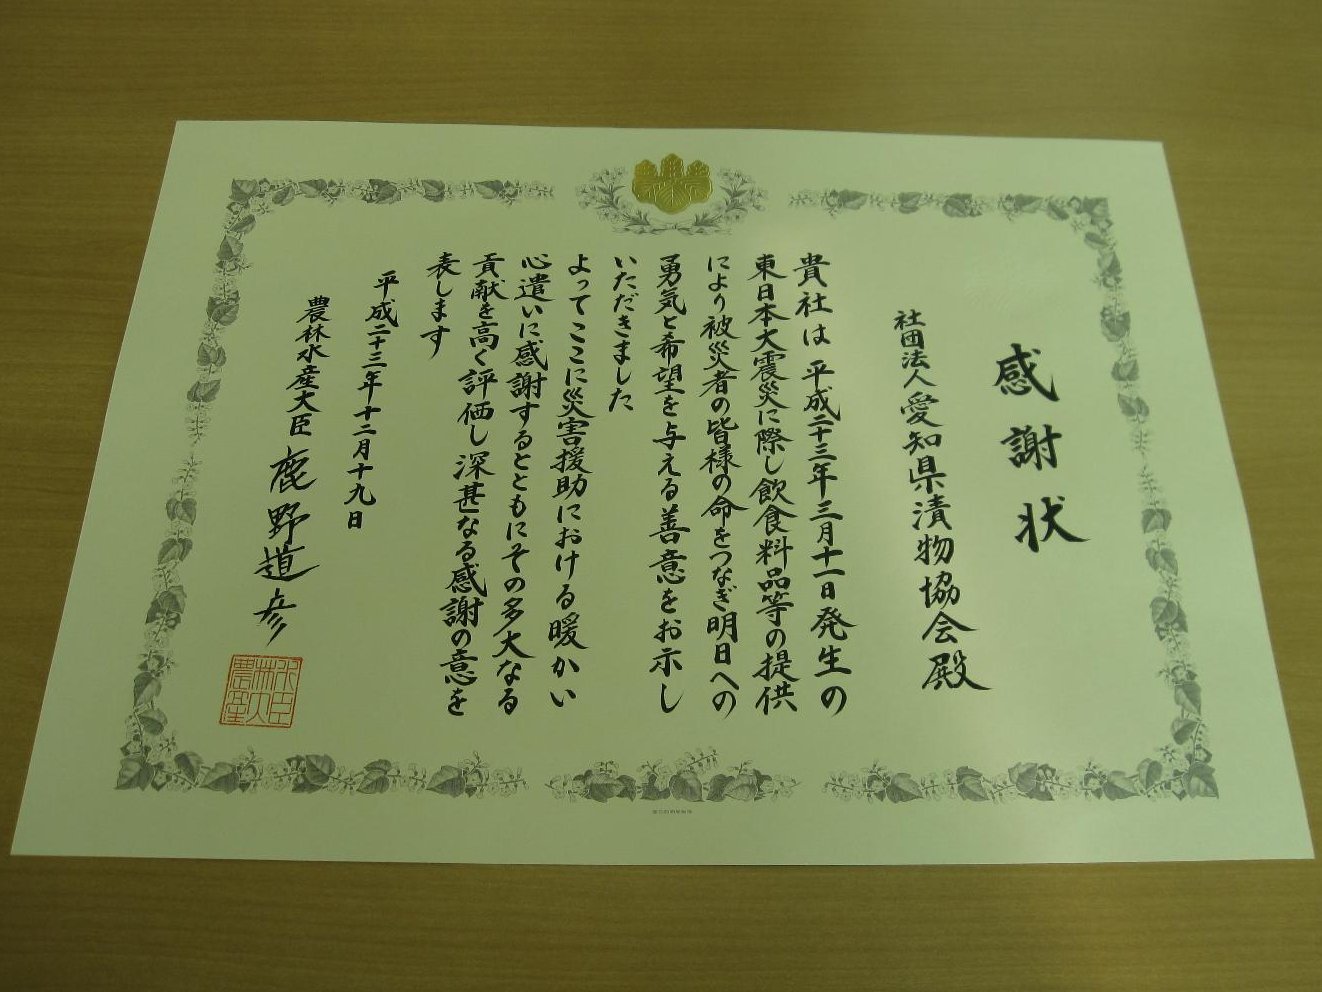 感謝状
社団法人愛知県漬物協会殿
貴社は平成二十三年三月十一日発生の
東日本大震災に際し飲食料品等の提供
により被災者の皆様の命をつなぎ明日への
勇気と希望を与える善意をお示し
いただきました
よってここに災害援助における暖かい
心遣いに感謝するとともにその多大なる
貢献を高く評価し深甚なる感謝の意を
表します
平成二十三年十二月十九日
農林水産大臣 鹿野道彦